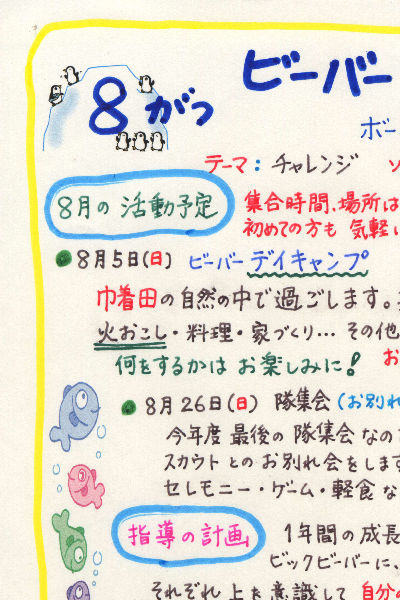 8がつ
ビーバー
ボー
テーマ：チャレンジ
8月の活動予定
集合時間、場所は
初めての方も 気軽に
8月5日(日) ビーバーデイキャンプ
巾着田の自然の中で過ごします。
火おこし・料理・家づくり… その他
何をするかは お楽しみに！
8月26日(日) 隊集会 (お別れ
今年度 最後の 隊集会 なの
スカウト との お別れ会をします
セレモニー・ゲーム・軽食 な
指導の計画
1年間の成長
ビックビーバーに、
それぞれ 上を 意識して 自分の